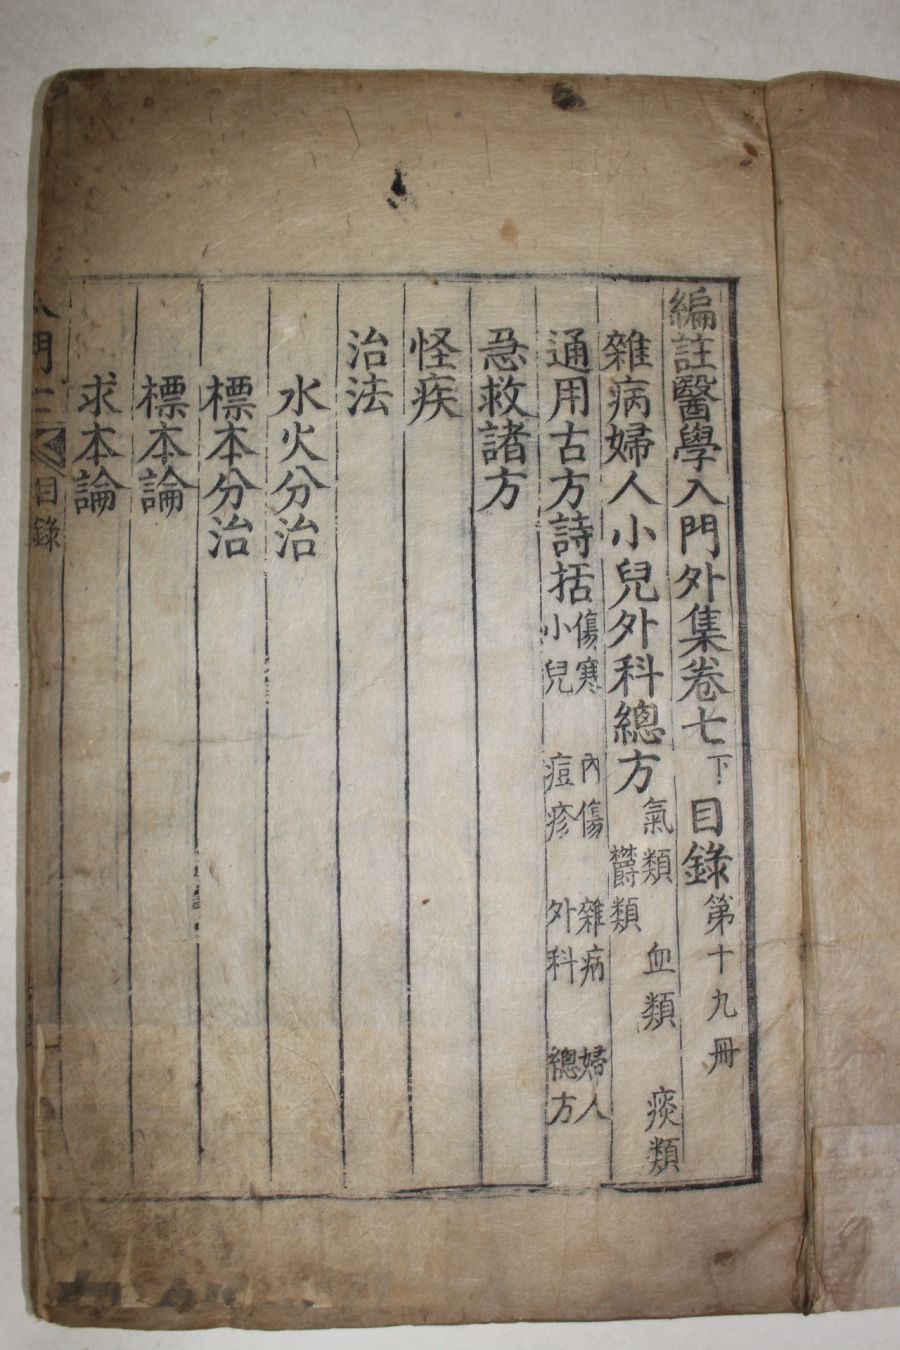 編註醫學入門外集卷七下目錄 第十九冊
雜病婦人小兒外科總方 氣類 血類 痰類
欝類
通用古方詩括 傷寒 內傷 雜病 婦人
小兒 痘疹 外科 總方
急救諸方
怪疾
治法
水火分治
標本分治
標本論
求本論
入門 目錄